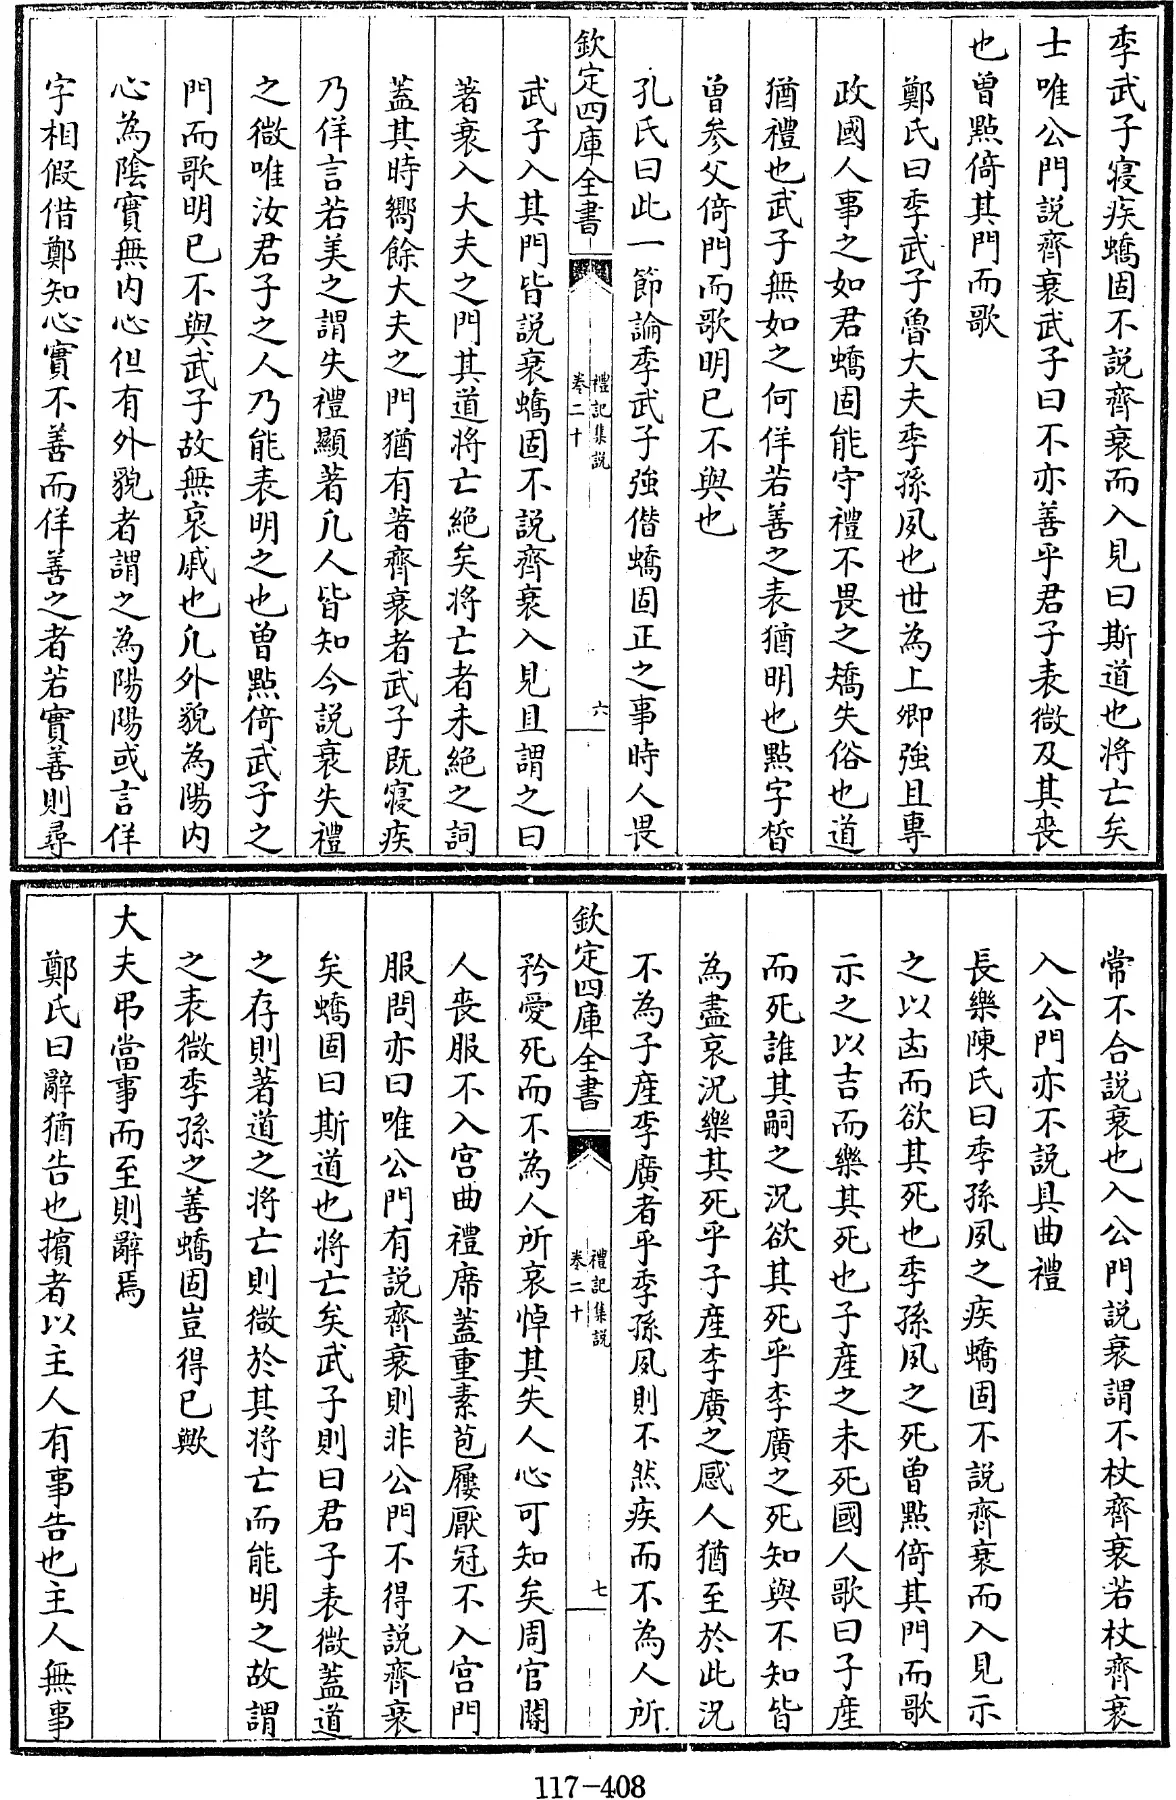 季武子寢疾蟜固不説齊衰而入見曰斯道也將亡矣
士唯公門説齊衰武子曰不亦善乎君子表微及其喪
也曾點倚其門而歌
鄭氏曰季武子魯大夫季孫夙也世為上卿強且專
政國人事之如君蟜固能守禮不畏之矯失俗也道
猶禮也武子無如之何佯若善之表猶明也點字晳
曾參父倚門而歌明已不與也
孔氏曰此一節論季武子強僭蟜固正之事時人畏
欽定四庫全書
禮記集説
卷二十
六
武子入其門皆説衰蟜固不説齊衰入見且謂之曰
著衰入大夫之門其道將亡絶矣將亡者未絶之詞
蓋其時嚮餘大夫之門猶有著齊衰者武子既寢疾
乃佯言若美之謂失禮顯著凡人皆知今説衰失禮
之微唯汝君子之人乃能表明之也曾點倚武子之
門而歌明已不與武子故無哀戚也凡外貌為陽内
心為陰實無内心但有外貌者謂之為陽陽或言佯
字相假借鄭知心實不善而佯善之者若實善則尋
常不合説衰也入公門説衰謂不杖齊衰若杖齊衰
入公門亦不説具曲禮
長樂陳氏曰季孫夙之疾蟜固不説齊衰而入見示
之以凶而欲其死也季孫夙之死曾點倚其門而歌
示之以吉而樂其死也子産之未死國人歌曰子産
而死誰其嗣之況欲其死乎李廣之死知與不知皆
為盡哀況樂其死乎子産李廣之感人猶至於此況
不為子産李廣者乎季孫夙則不然疾而不為人所
欽定四庫全書
禮記集説
卷二十
七
矜愛死而不為人所哀悼其失人心可知矣周官閽
人喪服不入宫曲禮席蓋重素苞屨厭冠不入宫門
服問亦曰唯公門有説齊衰則非公門不得説齊衰
矣蟜固曰斯道也將亡矣武子則曰君子表微蓋道
之存則著道之將亡則微於其將亡而能明之故謂
之表微季孫之善蟜固豈得已歟
大夫弔當事而至則辭焉
鄭氏曰辭猶告也擯者以主人有事告也主人無事
117-408